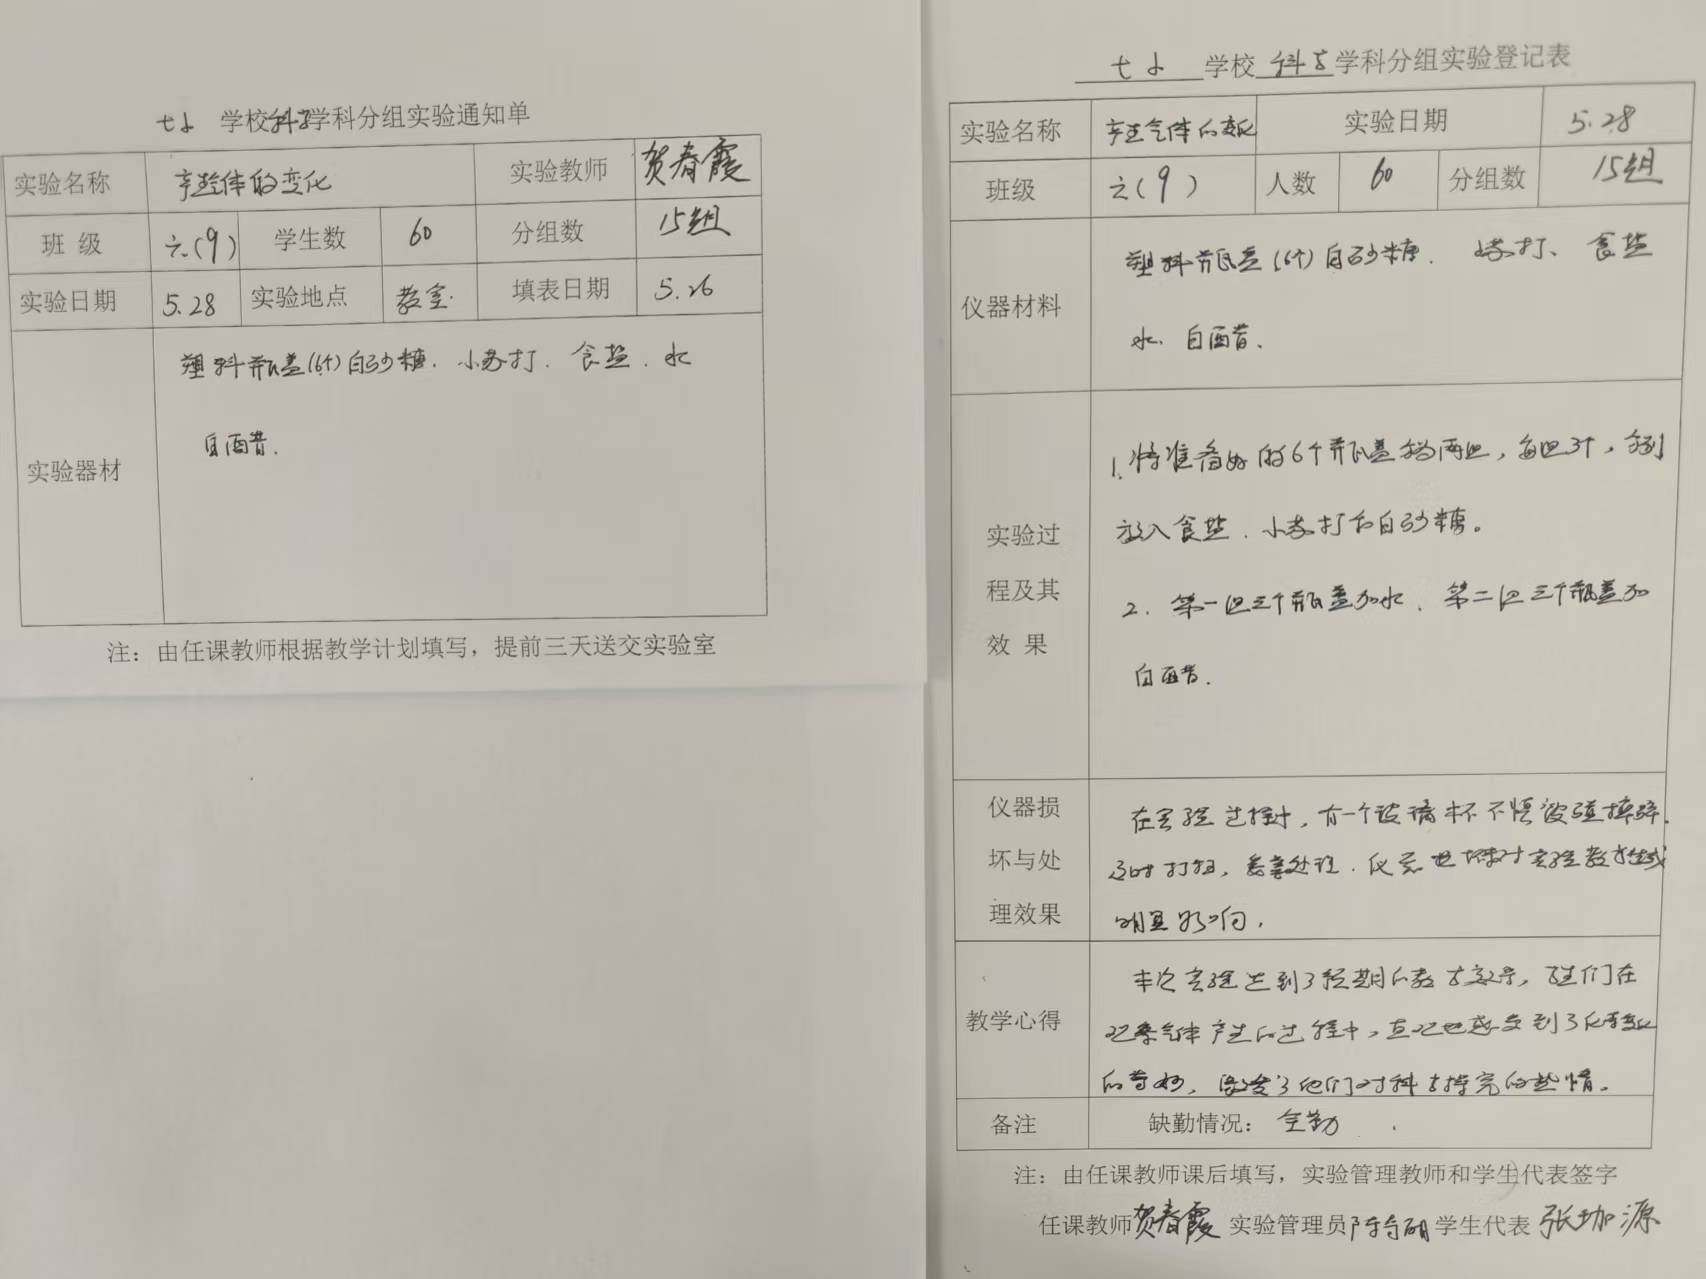 七小 学校科学学科分组实验通知单
实验名称 产生气体的变化 实验教师 贺春霞
班 级 六(9) 学生数 60 分组数 15组
实验日期 5.28 实验地点 教室. 填表日期 5.26
实验器材
塑料瓶盖(6个)白砂糖. 小苏打. 食盐. 水
白酒昔.
注：由任课教师根据教学计划填写，提前三天送交实验室
七小 学校 科学 学科分组实验登记表
实验名称 产生气体的变化 实验日期 5.28
班级 六(9) 人数 60 分组数 15组
仪器材料
塑料瓶盖(6个)白砂糖. 小苏打、食盐
水. 白酒昔、
实验过
程及其
效 果
1. 将准备好的6个瓶盖分为两组，每组3个，分别
放入食盐.小苏打和白砂糖。
2. 第一组三个瓶盖加水. 第二组三个瓶盖加
白醋.
仪器损
坏与处
理效果
在实验过程中，有一个玻璃杯不慎被碰摔碎.
及时打扫，妥善处理.仪器损坏对实验教学生成
明显影响.
教学心得
本次实验达到了预期的教学效果，学生们在
观察气体产生的过程中，直观地感受到了化学变化
的奇妙，激发了他们对科学探究的热情。
备注 缺勤情况： 全勤
注：由任课教师课后填写，实验管理教师和学生代表签字
任课教师 贺春霞 实验管理员 学生代表 张珈源